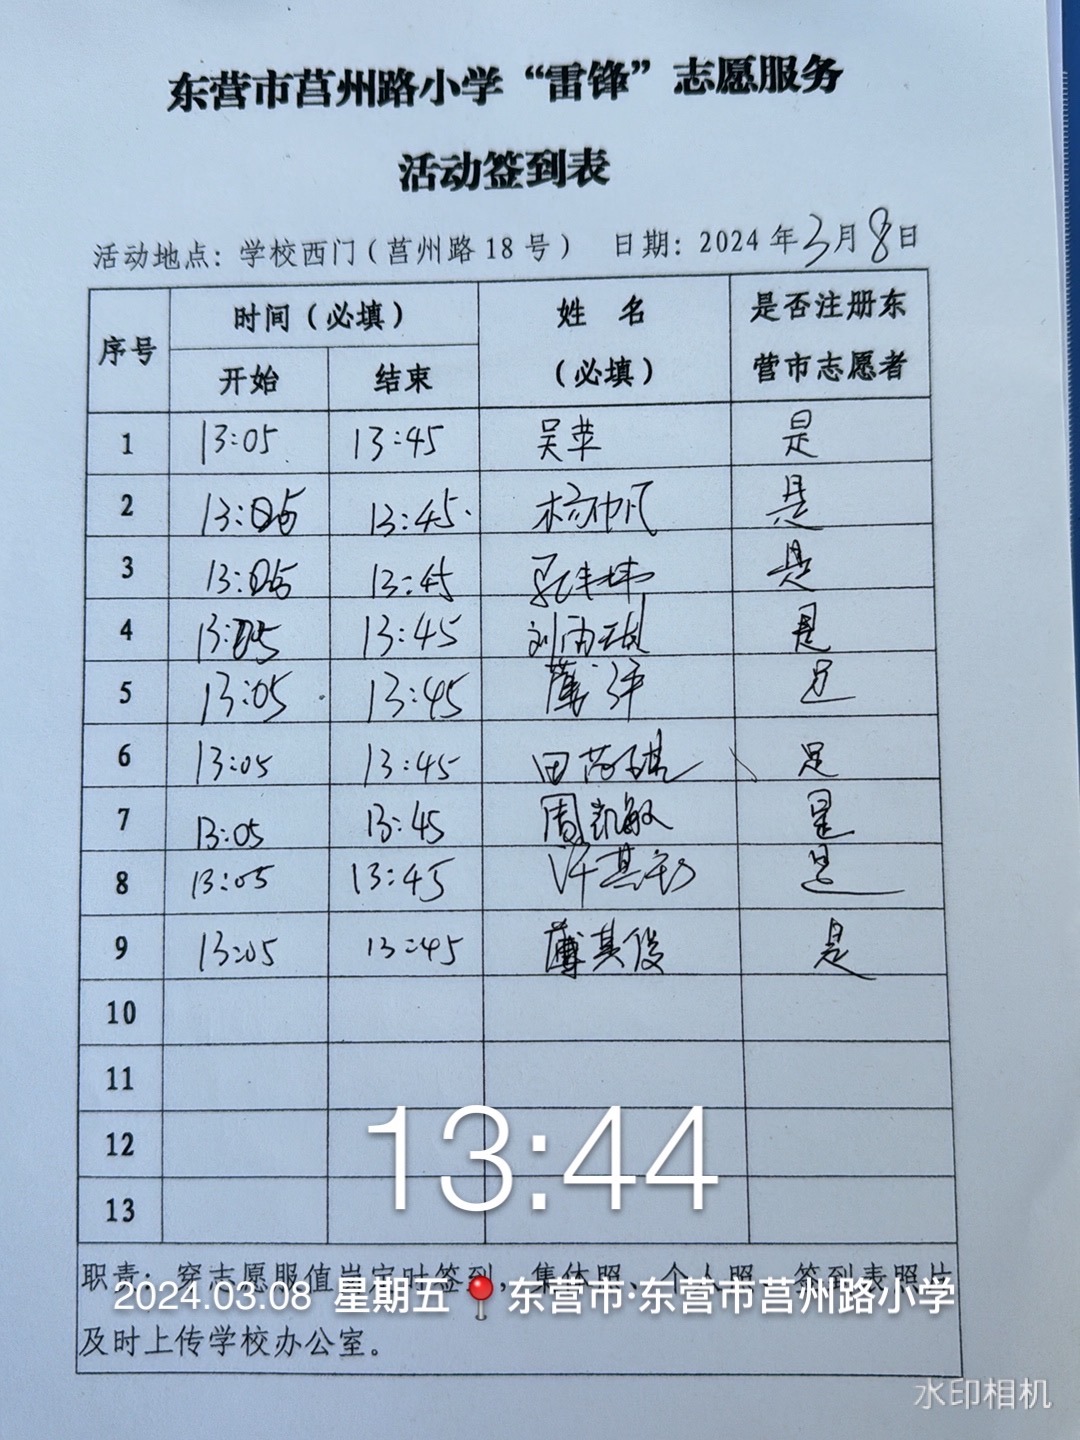 东营市莒州路小学“雷锋”志愿服务
活动签到表
活动地点：学校西门（莒州路18号） 日期：2024年3月8日
序号 时间（必填） 姓 名（必填） 是否注册东营市志愿者
开始 结束
1 13:05 13:45 吴苹 是
2 13:05 13:45 杨帅凡 是
3 13:05 13:45 是
4 13:05 13:45 刘雨 是
5 13:05 13:45 是
6 13:05 13:45 田 是
7 13:05 13:45 周凯敏 是
8 13:05 13:45 许其 是
9 13:05 13:45 薄其俊 是
10
11
12
13
13:44
职责：穿志愿服值岗定时签到，集体照、个人照、签到表照片
及时上传学校办公室。
2024.03.08 星期五 东营市·东营市莒州路小学
水印相机